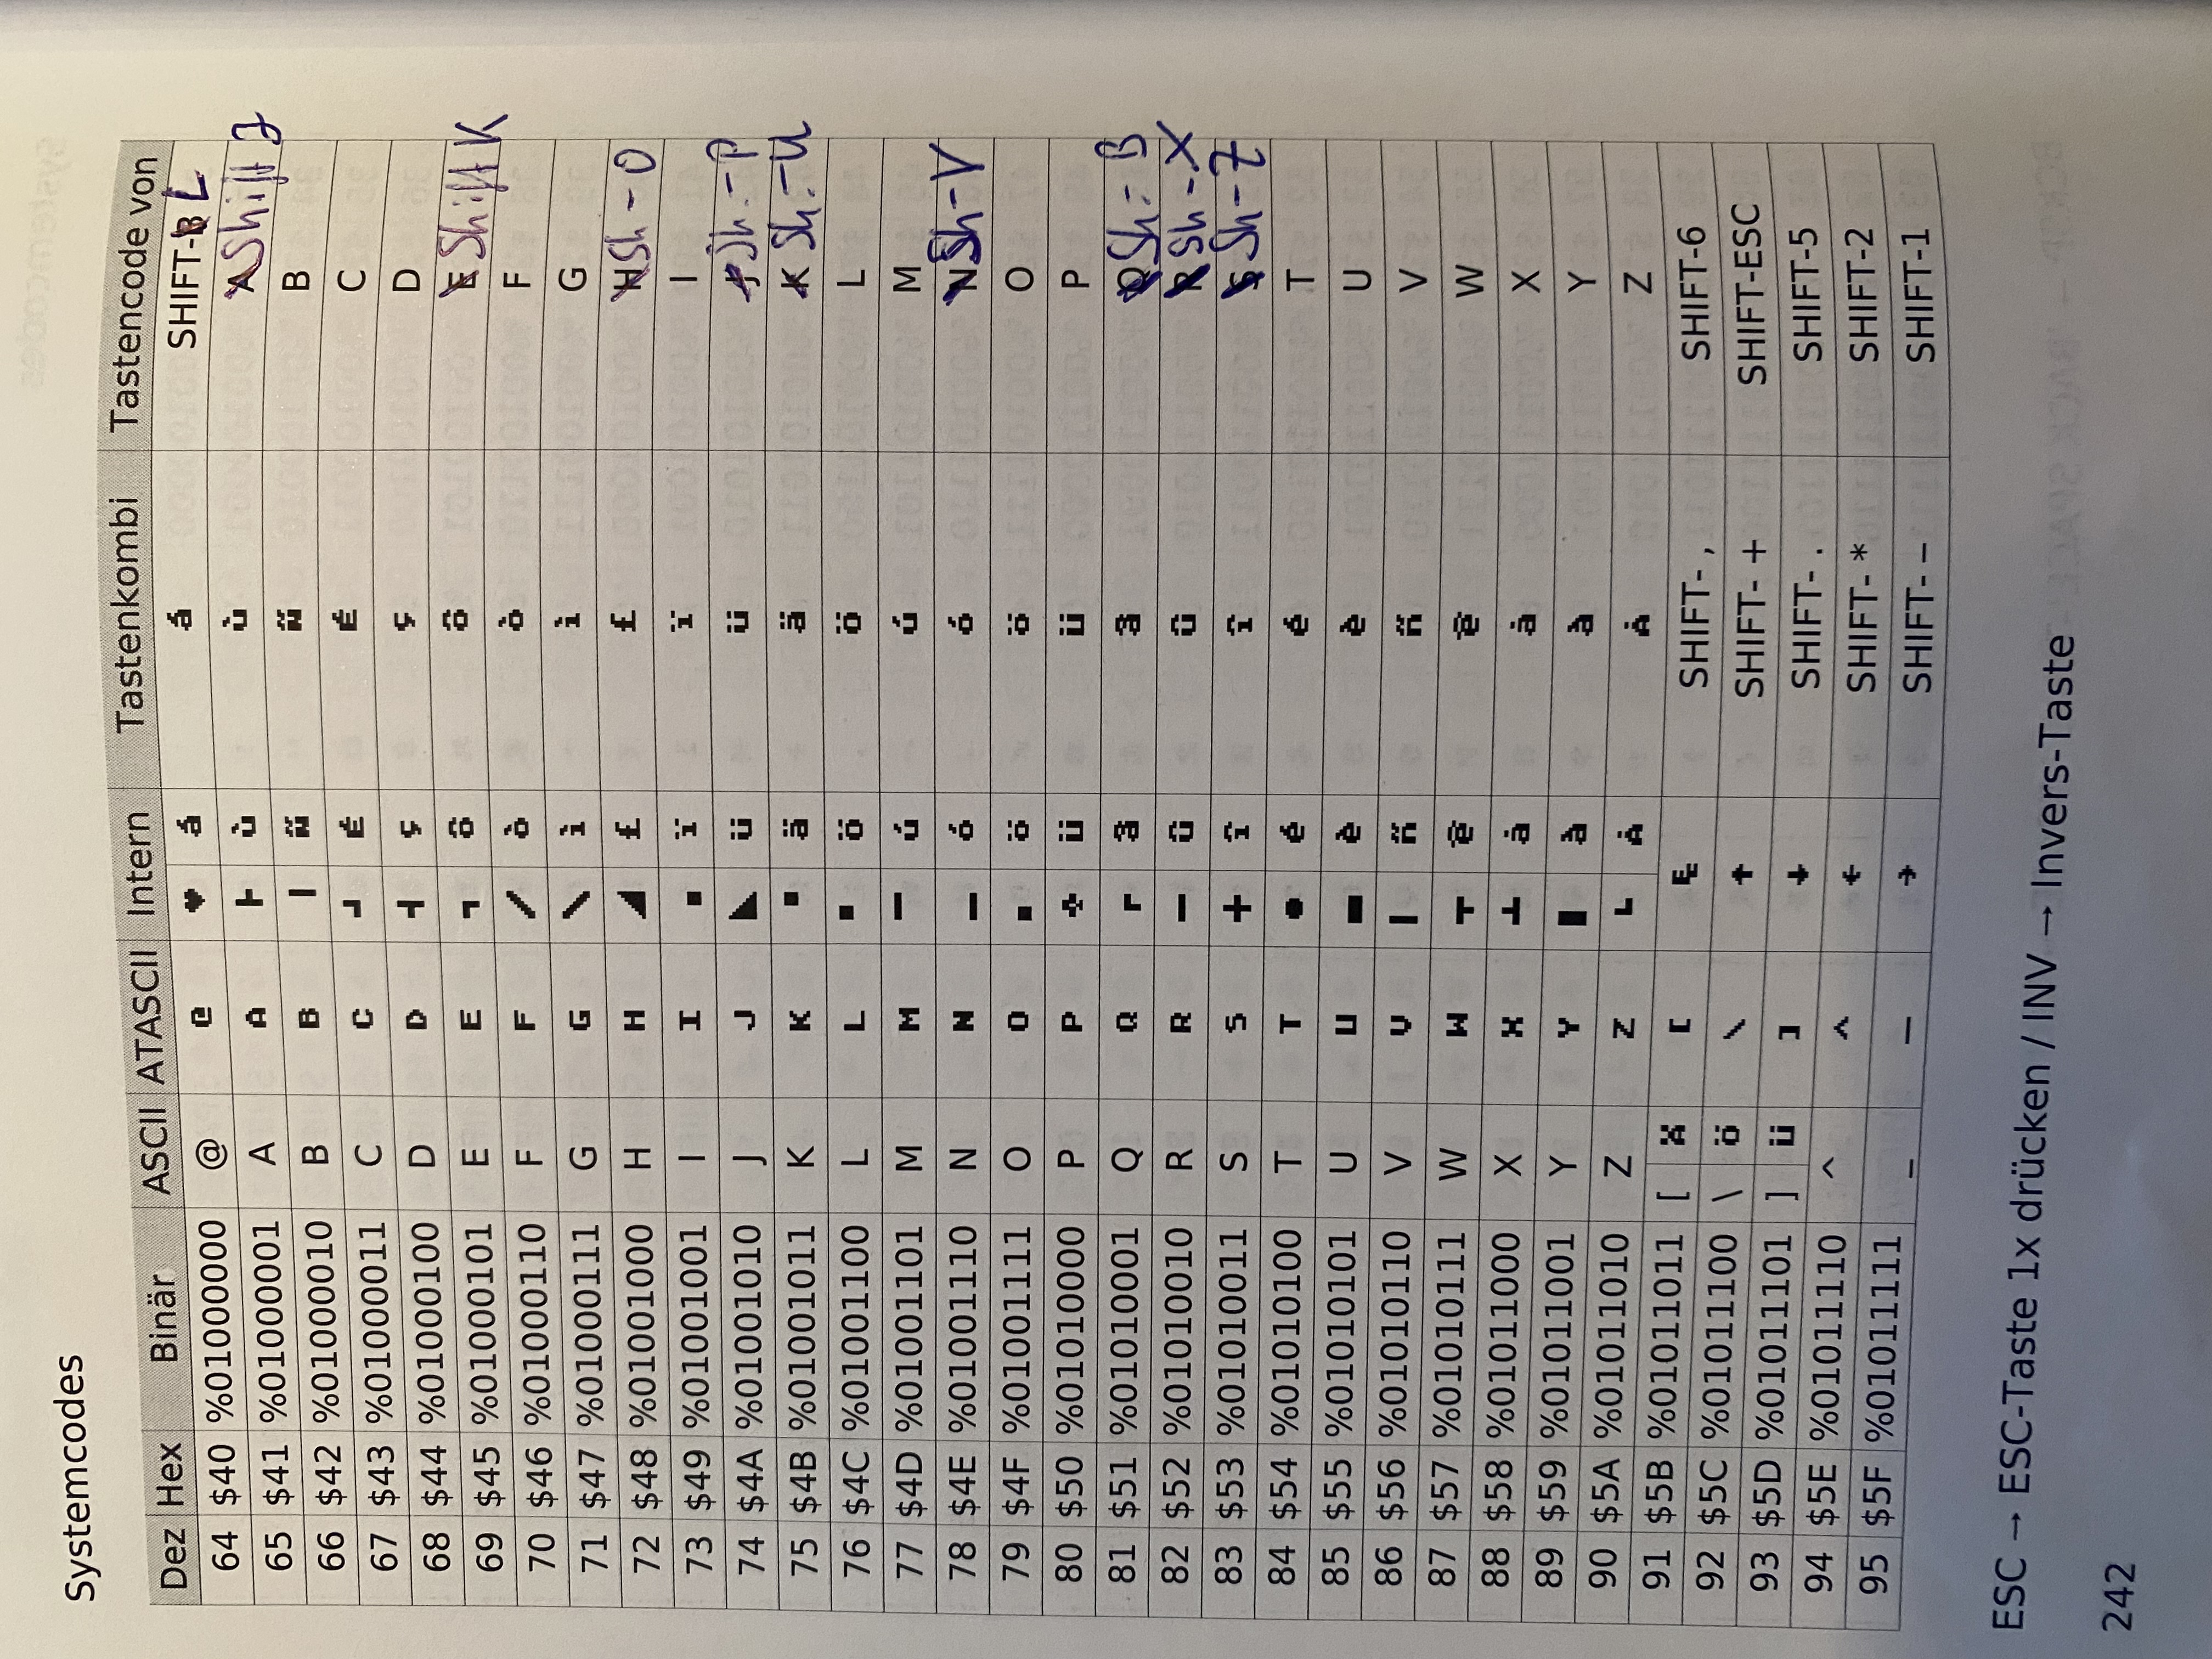 Systemcodes
Dez Hex Binär ASCII ATASCII Intern Tastenkombi Tastencode von
64 $40 %01000000 @ @ ♥ á á SHIFT-B L
65 $41 %01000001 A A ├ ù ù A Shift J
66 $42 %01000010 B B Ñ Ñ B
67 $43 %01000011 C C ┘ É É C
68 $44 %01000100 D D ┤ ç ç D
69 $45 %01000101 E E ┐ ô ô E Shift K
70 $46 %01000110 F F ╱ ò ò F
71 $47 %01000111 G G ╲ ì ì G
72 $48 %01001000 H H ◢ £ £ H Sh-O
73 $49 %01001001 I I ï ï I
74 $4A %01001010 J J ◣ ü ü J Sh.-P
75 $4B %01001011 K K ä ä K Sh.-U
76 $4C %01001100 L L Ö Ö L
77 $4D %01001101 M M ú ú M
78 $4E %01001110 N N ó ó N Sh-V
79 $4F %01001111 O O ö ö O
80 $50 %01010000 P P ♣ Ü Ü P
81 $51 %01010001 Q Q ┌ â â Q Sh.-B
82 $52 %01010010 R R ─ û û R Sh-X
83 $53 %01010011 S S ┼ î î S Sh-Z
84 $54 %01010100 T T ● é é T
85 $55 %01010101 U U ▄ è è U
86 $56 %01010110 V V ñ ñ V
87 $57 %01010111 W W ┬ ê ê W
88 $58 %01011000 X X ┴ å å X
89 $59 %01011001 Y Y ▌ à à Y
90 $5A %01011010 Z Z └ Å Å Z
91 $5B %01011011 [ Ä [ SHIFT- , SHIFT-6
92 $5C %01011100 \ ö \ ↑ SHIFT- + SHIFT-ESC
93 $5D %01011101 ] ü ] ↓ SHIFT- . SHIFT-5
94 $5E %01011110 ^ ^ ← SHIFT- * SHIFT-2
95 $5F %01011111 _ _ → SHIFT- – SHIFT-1
ESC → ESC-Taste 1x drücken / INV → Invers-Taste
242